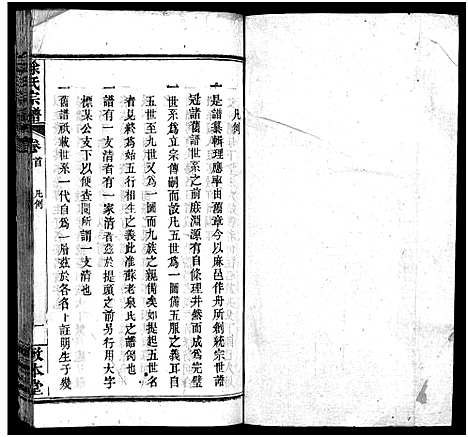 凡例
一是譜纂輯理應率由舊章今以麻邑作舟所創統宗世譜
冠諸舊譜世系之前庶淵源有自條理井然而成為完璧
一世系為立宗傳嗣而設凡五世為一圖備五服之義耳自
五世至九世又為一圖而九族之親備矣如提起五世名
者見終而始五行相生之義此准蘇老泉氏之譜例也
一譜有一支清者有一家清者茲於提頭之前另行用大字
標某公支下以便查閱所謂一支清也
一舊譜祇載世系一代自為一層茲於各名下註明生子幾
徐氏宗譜
卷首
凡例
一
敦本堂